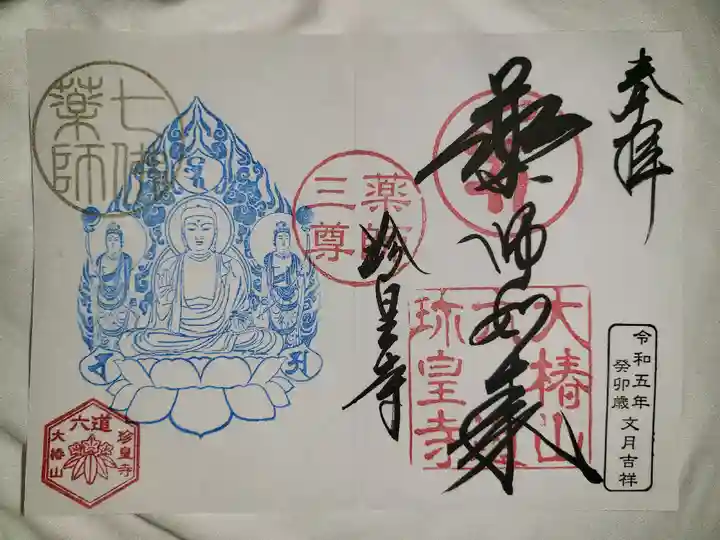 奉拝
薬師如来
大椿山
珎皇寺
令和五年 文月吉祥
癸卯歳
珍皇寺
薬師
三尊
七佛
薬師
六道
珍皇寺
大椿山